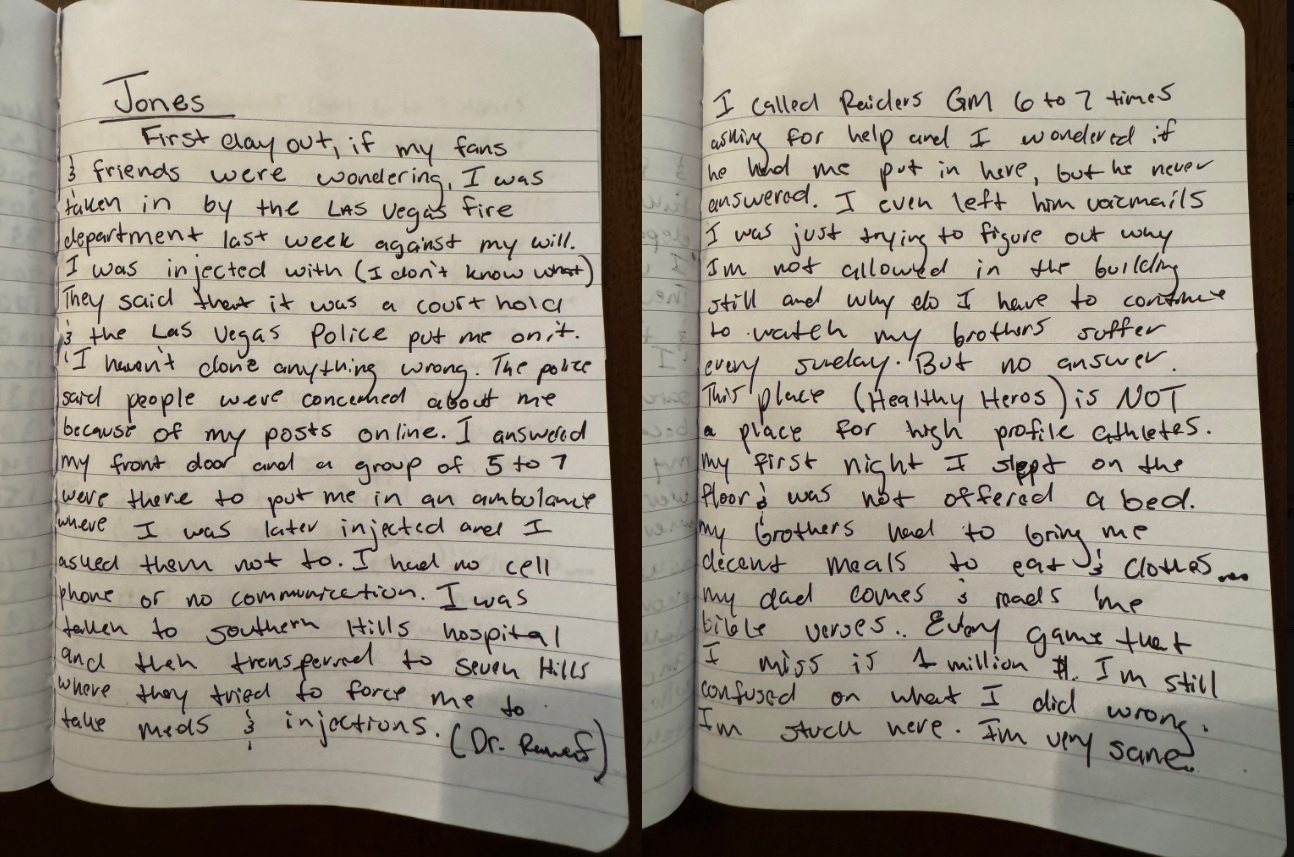 Jones
First day out, if my fans
& friends were wondering, I was
taken in by the LAS Vegas fire
department last week against my will.
I was injected with (I don't know what)
They said that it was a court hold
& the Las Vegas Police put me on it.
I haven't done anything wrong. The police
said people were concerned about me
because of my posts online. I answered
my front door and a group of 5 to 7
were there to put me in an ambulance
where I was later injected and I
asked them not to. I had no cell
phone or no communication. I was
taken to southern Hills hospital
and then transferred to seven Hills
where they tried to force me to
take meds & injections. (Dr.
I called Raiders GM 6 to 7 times
asking for help and I wondered if
he had me put in here, but he never
answered. I even left him voicmails
I was just trying to figure out why
Im not allowed in the building
still and why do I have to continue
to watch my brothers suffer
every sunday. But no answer.
This place (Healthy Heros) is NOT
a place for high profile athletes.
my first night I slept on the
floor & was not offered a bed.
my brothers had to bring me
decent meals to eat & clothes...
my dad comes & reads me
bible verses.. Every game that
I miss is 1 million $. I'm still
confused on what I did wrong.
I'm stuck here. I'm very sane.